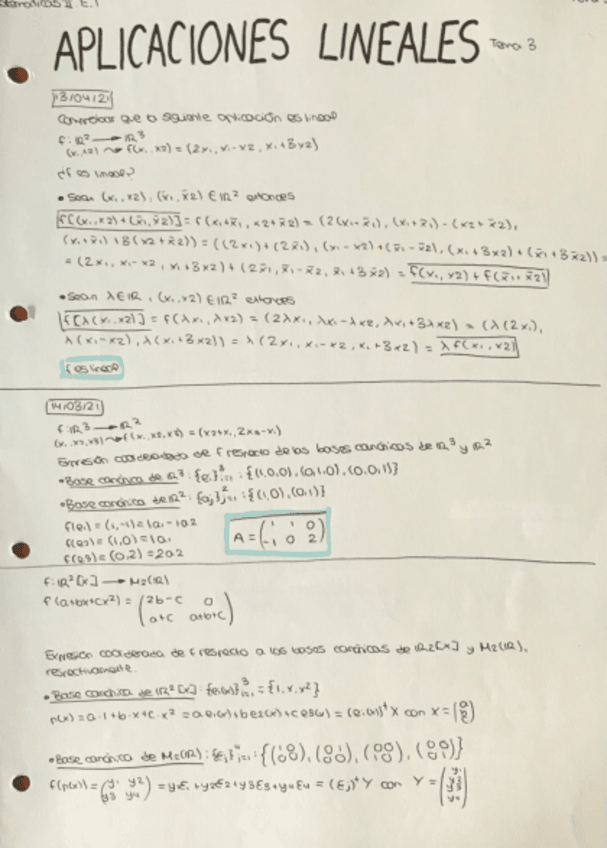 Matemáticas II E.1
APLICACIONES LINEALES Tema 3
13/04/21
Comprobar que la siguiente aplicación es lineal
f: ℝ² → ℝ³
(x₁,x2) ⤳ f(x₁,x2) = (2x₁, x₁-x2, x₁+3x2)
¿f es lineal?
• Sean (x₁,x2), (x̄₁,x̄2) ∈ ℝ² entonces
f[(x₁,x2)+(x̄₁,x̄2)] = f(x₁+x̄₁, x2+x̄2) = (2(x₁+x̄₁), (x₁+x̄₁)-(x2+x̄2),
(x₁+x̄₁)+3(x2+x̄2)) = ((2x₁)+(2x̄₁), (x₁-x2)+(x̄₁-x̄2), (x₁+3x2)+(x̄₁+3x̄2)) =
= (2x₁, x₁-x2, x₁+3x2)+(2x̄₁, x̄₁-x̄2, x̄₁+3x̄2) = f(x₁,x2)+f(x̄₁,x̄2)
• Sean λ∈ℝ, (x₁,x2) ∈ ℝ² entonces
f[λ(x₁,x2)] = f(λx₁, λx2) = (2λx₁, λx₁-λx2, λx₁+3λx2) = (λ(2x₁),
λ(x₁-x2), λ(x₁+3x2)) = λ(2x₁, x₁-x2, x₁+3x2) = λf(x₁,x2)
f es lineal
14/03/21
f: ℝ³ → ℝ²
(x₁,x2,x3) ⤳ f(x₁,x2,x3) = (x2+x₁, 2x3-x₁)
Expresión coordenada de f respecto de las bases canónicas de ℝ³ y ℝ²
• Base canónica de ℝ³: {eᵢ}³ᵢ₌₁ : {(1,0,0), (0,1,0), (0,0,1)}
• Base canónica de ℝ²: {aj}²j=1 : {(1,0), (0,1)}
f(e₁) = (1,-1) = 1a₁ - 1a2
f(e2) = (1,0) = 1a₁
f(e3) = (0,2) = 2a2
A = (1 1 0
-1 0 2)
f: ℝ²[x] → M2(ℝ)
f(a+bx+cx²) = (2b-c 0
a+c a+b+c)
Expresión coordenada de f respecto a las bases canónicas de ℝ2[x] y M2(ℝ),
respectivamente.
• Base canónica de ℝ²[x]: {eᵢ(x)}³ᵢ₌₁ = {1, x, x²}
p(x) = a·1+b·x+c·x² = ae₁(x)+be2(x)+ce3(x) = (eᵢ(x))ᵗ X con X = (a b c)
• Base canónica de M2(ℝ): {εj}⁴j=1 : {(1 0 0 0), (0 1 0 0), (0 0 1 0), (0 0 0 1)}
f(p(x)) = (y₁ y2 y3 y4) = y₁ε₁+y2ε2+y3ε3+y4ε4 = (εj)ᵗ Y con Y = (y₁ y2 y3 y4)